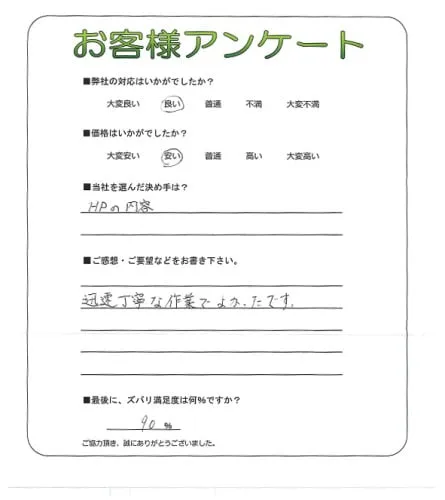 お客様アンケート
■弊社の対応はいかがでしたか?
大変良い 良い 普通 不満 大変不満
■価格はいかがでしたか?
大変安い 安い 普通 高い 大変高い
■当社を選んだ決め手は?
HPの内容
■ご感想・ご要望などをお書き下さい。
迅速丁寧な作業でよかったです。
■最後に、ズバリ満足度は何%ですか?
90 %
ご協力頂き、誠にありがとうございました。